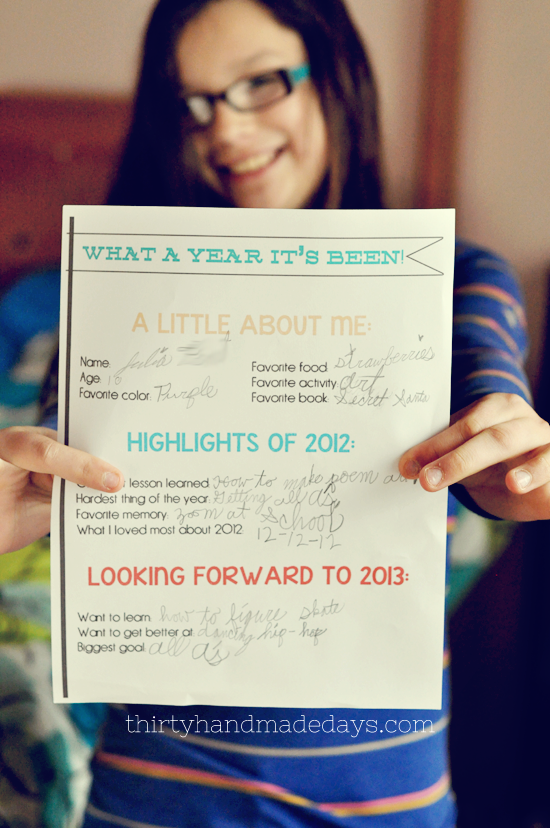 WHAT A YEAR IT'S BEEN!
A LITTLE ABOUT ME:
Name: Julia
Age: 10
Favorite color: Purple
Favorite food: strawberries
Favorite activity: art
Favorite book: Secret Santa
HIGHLIGHTS OF 2012:
lesson learned: How to make poem art
Hardest thing of the year: Getting all a's
Favorite memory: zoom at School
What I loved most about 2012: 12-12-12
LOOKING FORWARD TO 2013:
Want to learn: how to figure skate
Want to get better at: dancing hip-hop
Biggest goal: all a's
thirtyhandmadedays.com